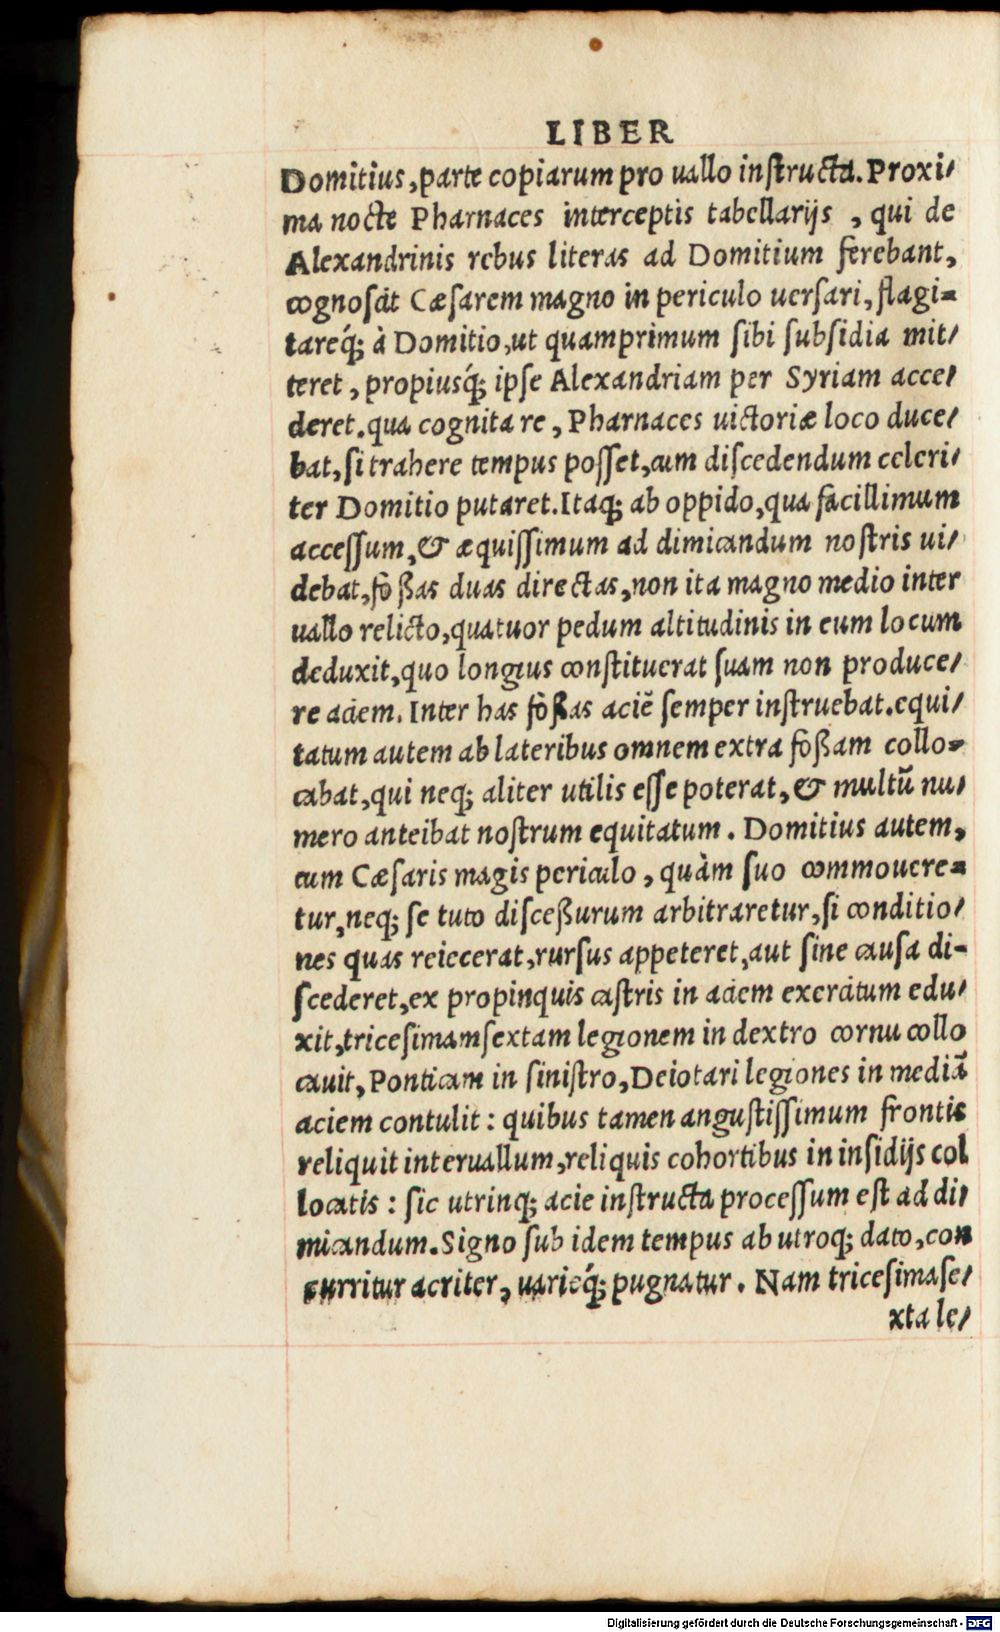 LIBER
Domitius, parte copiarum pro uallo instructa. Proxi-
ma nocte Pharnaces interceptis tabellarijs , qui de
Alexandrinis rebus literas ad Domitium ferebant,
cognoscit Cæsarem magno in periculo uersari, flagi=
tareq́; à Domitio, ut quamprimum sibi subsidia mit-
teret , propiusq́; ipse Alexandriam per Syriam acce-
deret. qua cognita re , Pharnaces uictoriæ loco duce-
bat, si trahere tempus posset, cum discedendum celeri-
ter Domitio putaret. Itaq; ab oppido, qua facillimum
accessum, & æquissimum ad dimicandum nostris ui-
debat, foßas duas directas, non ita magno medio inter
uallo relicto, quatuor pedum altitudinis in eum locum
deduxit, quo longius constituerat suam non produce-
re aciem. Inter has foßas aciẽ semper instruebat. equi-
tatum autem ab lateribus omnem extra foßam collo=
cabat, qui neq; aliter utilis esse poterat, & multũ nu-
mero anteibat nostrum equitatum . Domitius autem,
cum Cæsaris magis periculo , quàm suo commouere=
tur, neq; se tuto disceßurum arbitraretur, si conditio-
nes quas reiecerat, rursus appeteret, aut sine causa di-
scederet, ex propinquis castris in aciem exercitum edu-
xit, tricesimamsextam legionem in dextro cornu collo
cauit, Ponticam in sinistro, Deiotari legiones in mediã
aciem contulit : quibus tamen angustissimum frontis
reliquit interuallum, reliquis cohortibus in insidijs col
locatis : sic utrinq; acie instructa processum est ad di-
micandum. Signo sub idem tempus ab utroq; dato, con
curritur acriter, uarieq́; pugnatur . Nam tricesimase-
xta le-
Digitalisierung gefördert durch die Deutsche Forschungsgemeinschaft - DFG